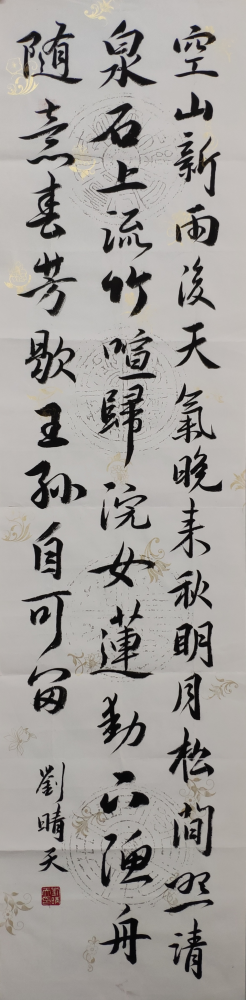 空山新雨後天氣晚来秋明月松間照清
泉石上流竹喧歸浣女蓮動下漁舟
随意春芳歇王孫自可留
劉晴天